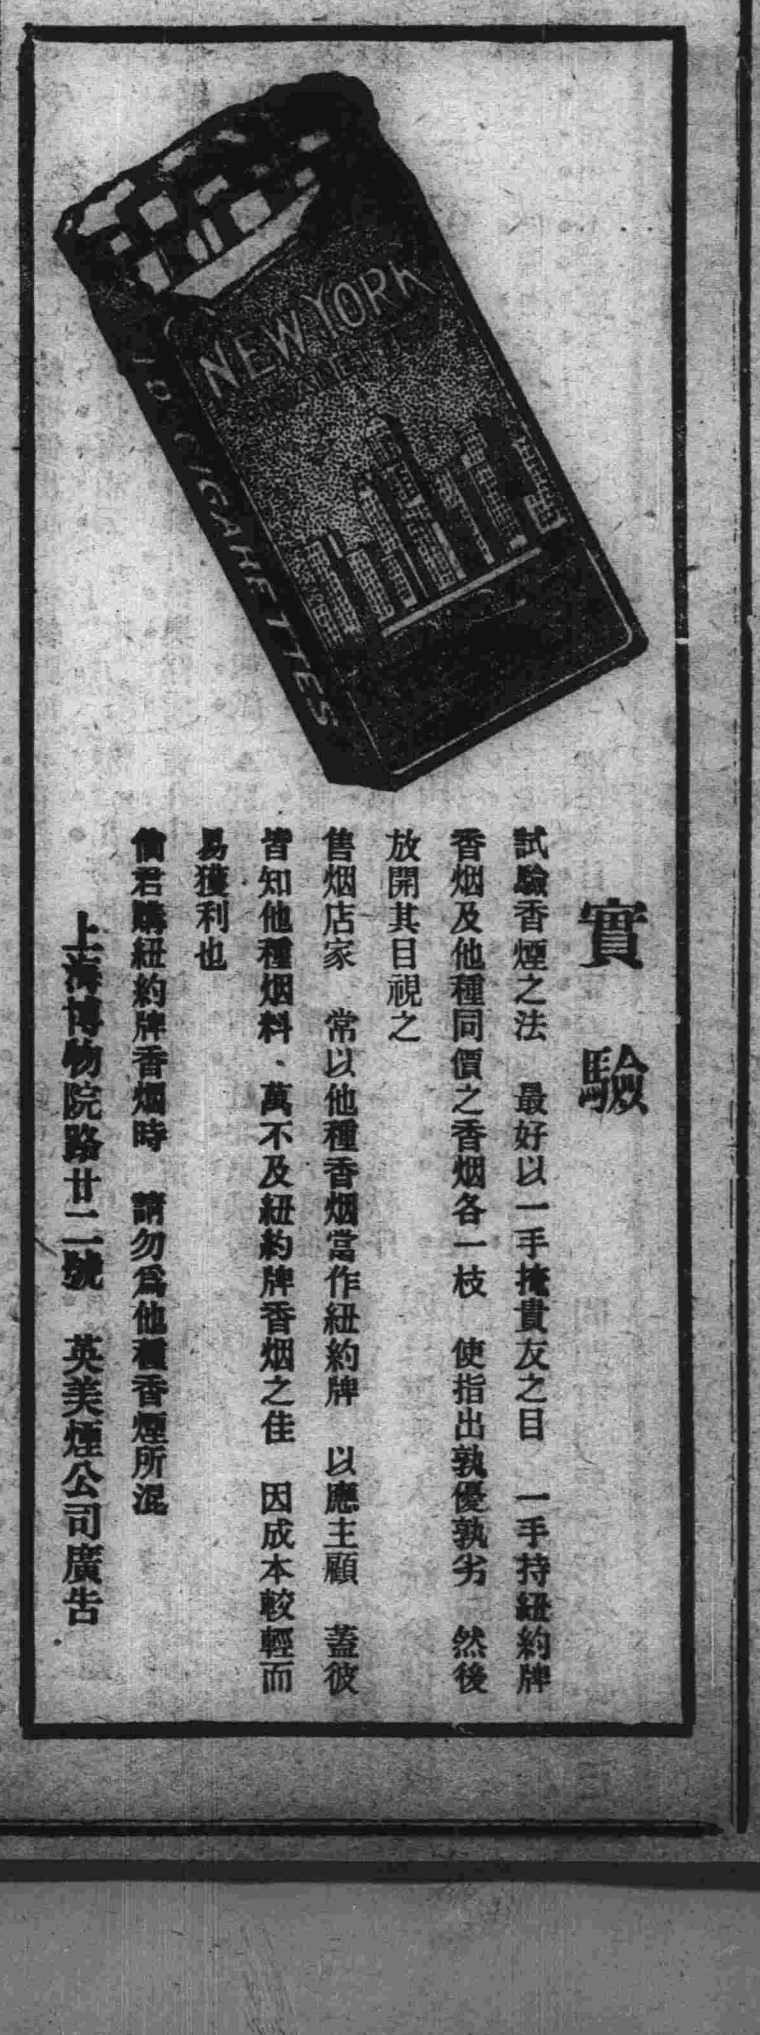 NEW YORK
10 CIGARETTES
實驗
試驗香煙之法　最好以一手掩貴友之目　一手持紐約牌
香烟及他種同價之香烟各一枝　使指出孰優孰劣　然後
放開其目視之
售烟店家　常以他種香烟當作紐約牌　以應主顧　蓋彼
皆知他種烟料、萬不及紐約牌香烟之佳　因成本較輕而
易獲利也
倘君購紐約牌香烟時　請勿爲他種香煙所混
上海博物院路廿二號　英美煙公司廣告